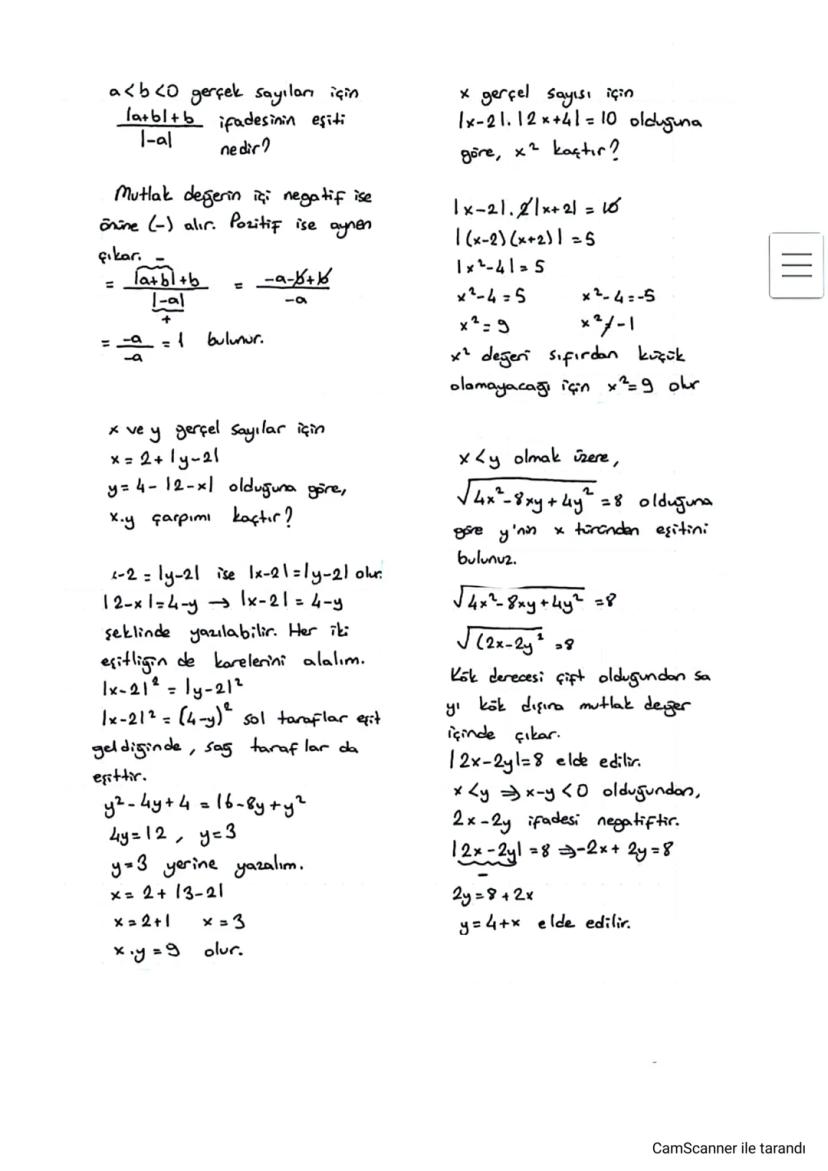 a<b<0 gerçek sayıları için
|a+b|+b / |-a| ifadesinin eşiti
nedir?
Mutlak değerin içi negatif ise
önüne (-) alır. Pozitif ise aynen
çıkar. -
= |a+b|+b / |-a| = -a-b+b / -a
+
= -a / -a = 1 bulunur.
x ve y gerçel sayılar için
x = 2+ |y-2|
y= 4- |2-x| olduğuna göre,
x.y çarpımı kaçtır?
x-2 = |y-2| ise |x-2|=|y-2| olur.
|2-x|=4-y → |x-2| = 4-y
şeklinde yazılabilir. Her iki
eşitliğin de karelerini alalım.
|x-2|² = |y-2|²
|x-2|² = (4-y)² sol taraflar eşit
geldiğinde, sağ taraflar da
eşittir.
y²-4y+4 = 16-8y+y²
4y=12, y=3
y=3 yerine yazalım.
x= 2+ |3-2|
x=2+1 x=3
x.y=9 olur.
x gerçel sayısı için
|x-2|.|2x+4|= 10 olduğuna
göre, x² kaçtır?
|x-2|.2|x+2| = 10
|(x-2)(x+2)| = 5
|x²-4|= 5
x²-4=5 x²-4=-5
x²=9 x²≠-1
x² değeri sıfırdan küçük
olamayacağı için x²=9 olur
x<y olmak üzere,
√4x²-8xy+4y² =8 olduğuna
göre y'nin x türünden eşitini
bulunuz.
√4x²-8xy+4y² =8
√(2x-2y² =8
Kök derecesi çift olduğundan sa
yı kök dışına mutlak değer
içinde çıkar.
|2x-2y|=8 elde edilir.
x<y ⇒ x-y<0 olduğundan,
2x-2y ifadesi negatiftir.
|2x-2y| =8 ⇒ -2x+2y=8
-
2y=8+2x
y=4+x elde edilir.
CamScanner ile tarandı